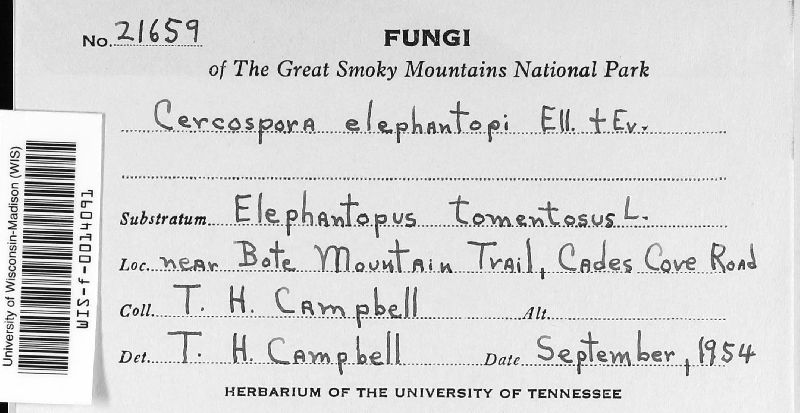 No. 21659
FUNGI
of The Great Smoky Mountains National Park
Cercospora elephantopi Ell. + Ev.
Substratum Elephantopus tomentosus L.
Loc. near Bote Mountain Trail, Cades Cove Road
Coll. T. H. Campbell Alt.
Det. T. H. Campbell Date September, 1954
HERBARIUM OF THE UNIVERSITY OF TENNESSEE
University of Wisconsin-Madison (WIS)
WIS-f-0014091